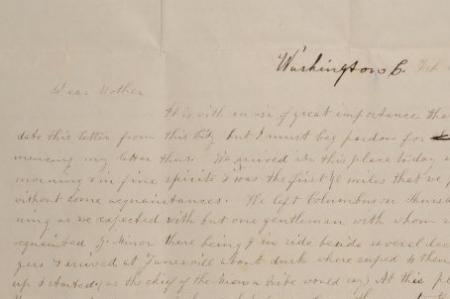 Washington C. Feb
Dear Mother
It is with an air of great importance that
date this letter from this City but I must beg pardon for
mencing my letter thus. We arrived at this place today
morning & in fine spirits I was the first 40 miles that we
without some acquaintances. We left Columbus on thurs
ning as we expected with but one gentleman with whom
acquainted G. Minor there being in side besids several
gers & arrived at Zanesvill about dark where suped & then
up & as the chief of the tribe would say) At this pl